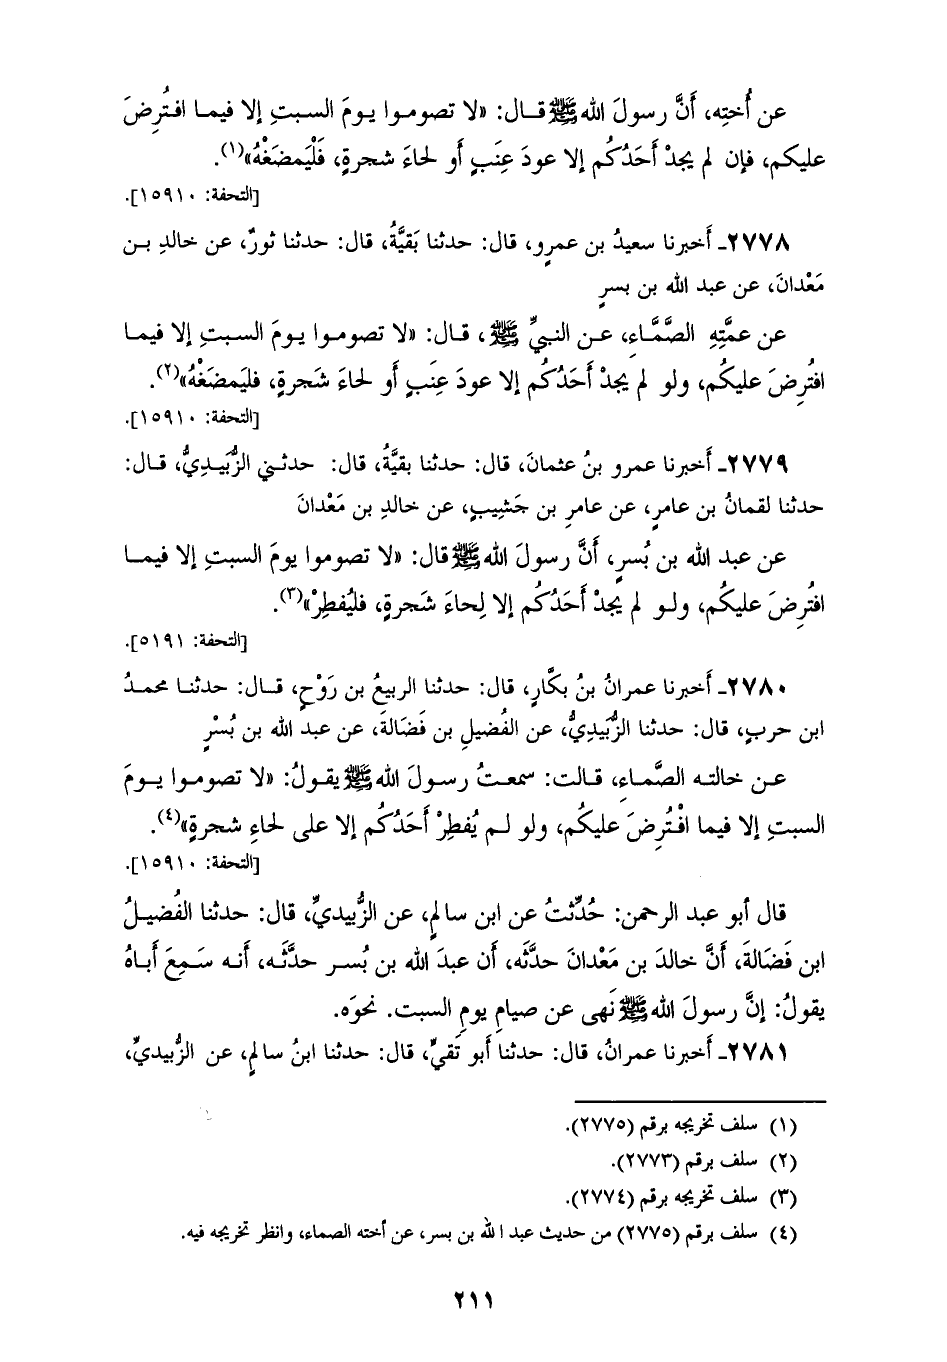 عن أُختِه، أَنَّ رسولَ الله ﷺ قال: «لا تصوموا يومَ السبتِ إلا فيما افتُرِضَ
عليكم، فإن لم يجدْ أَحَدُكُم إلا عودَ عِنَبٍ أو لحاءَ شجرةٍ، فَلْيَمضَغْهُ»(١).
[التحفة: ١٥٩١٠].
٢٧٧٨ـ أخبرنا سعيدُ بن عمرو، قال: حدثنا بَقيَّةُ، قال: حدثنا ثورٌ، عن خالدِ بن
مَعْدانَ، عن عبد الله بن بسرٍ
عن عمَّتِهِ الصَّمَّاءِ، عن النبيِّ ﷺ، قال: «لا تصوموا يومَ السبتِ إلا فيما
افتُرِضَ عليكُم، ولو لم يجدْ أَحَدُكُم إلا عودَ عِنَبٍ أو لحاءَ شَجرةٍ، فليَمضَغْهُ»(٢).
[التحفة: ١٥٩١٠].
٢٧٧٩ـ أخبرنا عمرو بنُ عثمانَ، قال: حدثنا بقيَّةُ، قال: حدثني الزُّبَيديُّ، قال:
حدثنا لقمانُ بن عامرٍ، عن عامرِ بن جَشِيبٍ، عن خالدِ بن مَعْدانَ
عن عبد الله بن بُسرٍ، أَنَّ رسولَ الله ﷺ قال: «لا تصوموا يومَ السبتِ إلا فيما
افتُرِضَ عليكُم، ولو لم يجدْ أَحَدُكُم إلا لِحاءَ شَجرةٍ، فليُفطِرْ»(٣).
[التحفة: ٥١٩١].
٢٧٨٠ـ أخبرنا عمرانُ بنُ بكَّارٍ، قال: حدثنا الربيعُ بن رَوْحٍ، قال: حدثنا محمدُ
ابن حربٍ، قال: حدثنا الزُّبَيديُّ، عن الفُضيلِ بن فَضَالةَ، عن عبد الله بن بُسْرٍ
عن خالته الصَّماءِ، قالت: سمعتُ رسولَ الله ﷺ يقولُ: «لا تصوموا يومَ
السبتِ إلا فيما افْتُرِضَ عليكُم، ولو لم يُفطِرْ أَحَدُكُم إلا على لحاءِ شجرةٍ»(٤).
[التحفة: ١٥٩١٠].
قال أبو عبد الرحمن: حُدِّثتُ عن ابن سالمٍ، عن الزُّبيديِّ، قال: حدثنا الفُضيلُ
ابن فَضَالةَ، أَنَّ خالدَ بن مَعْدانَ حدَّثَه، أن عبدَ الله بن بُسر حدَّثَه، أنه سَمِعَ أَباهُ
يقولُ: إنَّ رسولَ الله ﷺ نَهى عن صيامِ يومِ السبت. نحوَه.
٢٧٨١ـ أخبرنا عمرانُ، قال: حدثنا أبو تَقيٍّ، قال: حدثنا ابنُ سالمٍ، عن الزُّبيديِّ،
(١) سلف تخريجه برقم (٢٧٧٥).
(٢) سلف برقم (٢٧٧٣).
(٣) سلف تخريجه برقم (٢٧٧٤).
(٤) سلف برقم (٢٧٧٥) من حديث عبد الله بن بسر، عن أخته الصماء، وانظر تخريجه فيه.
٢١١